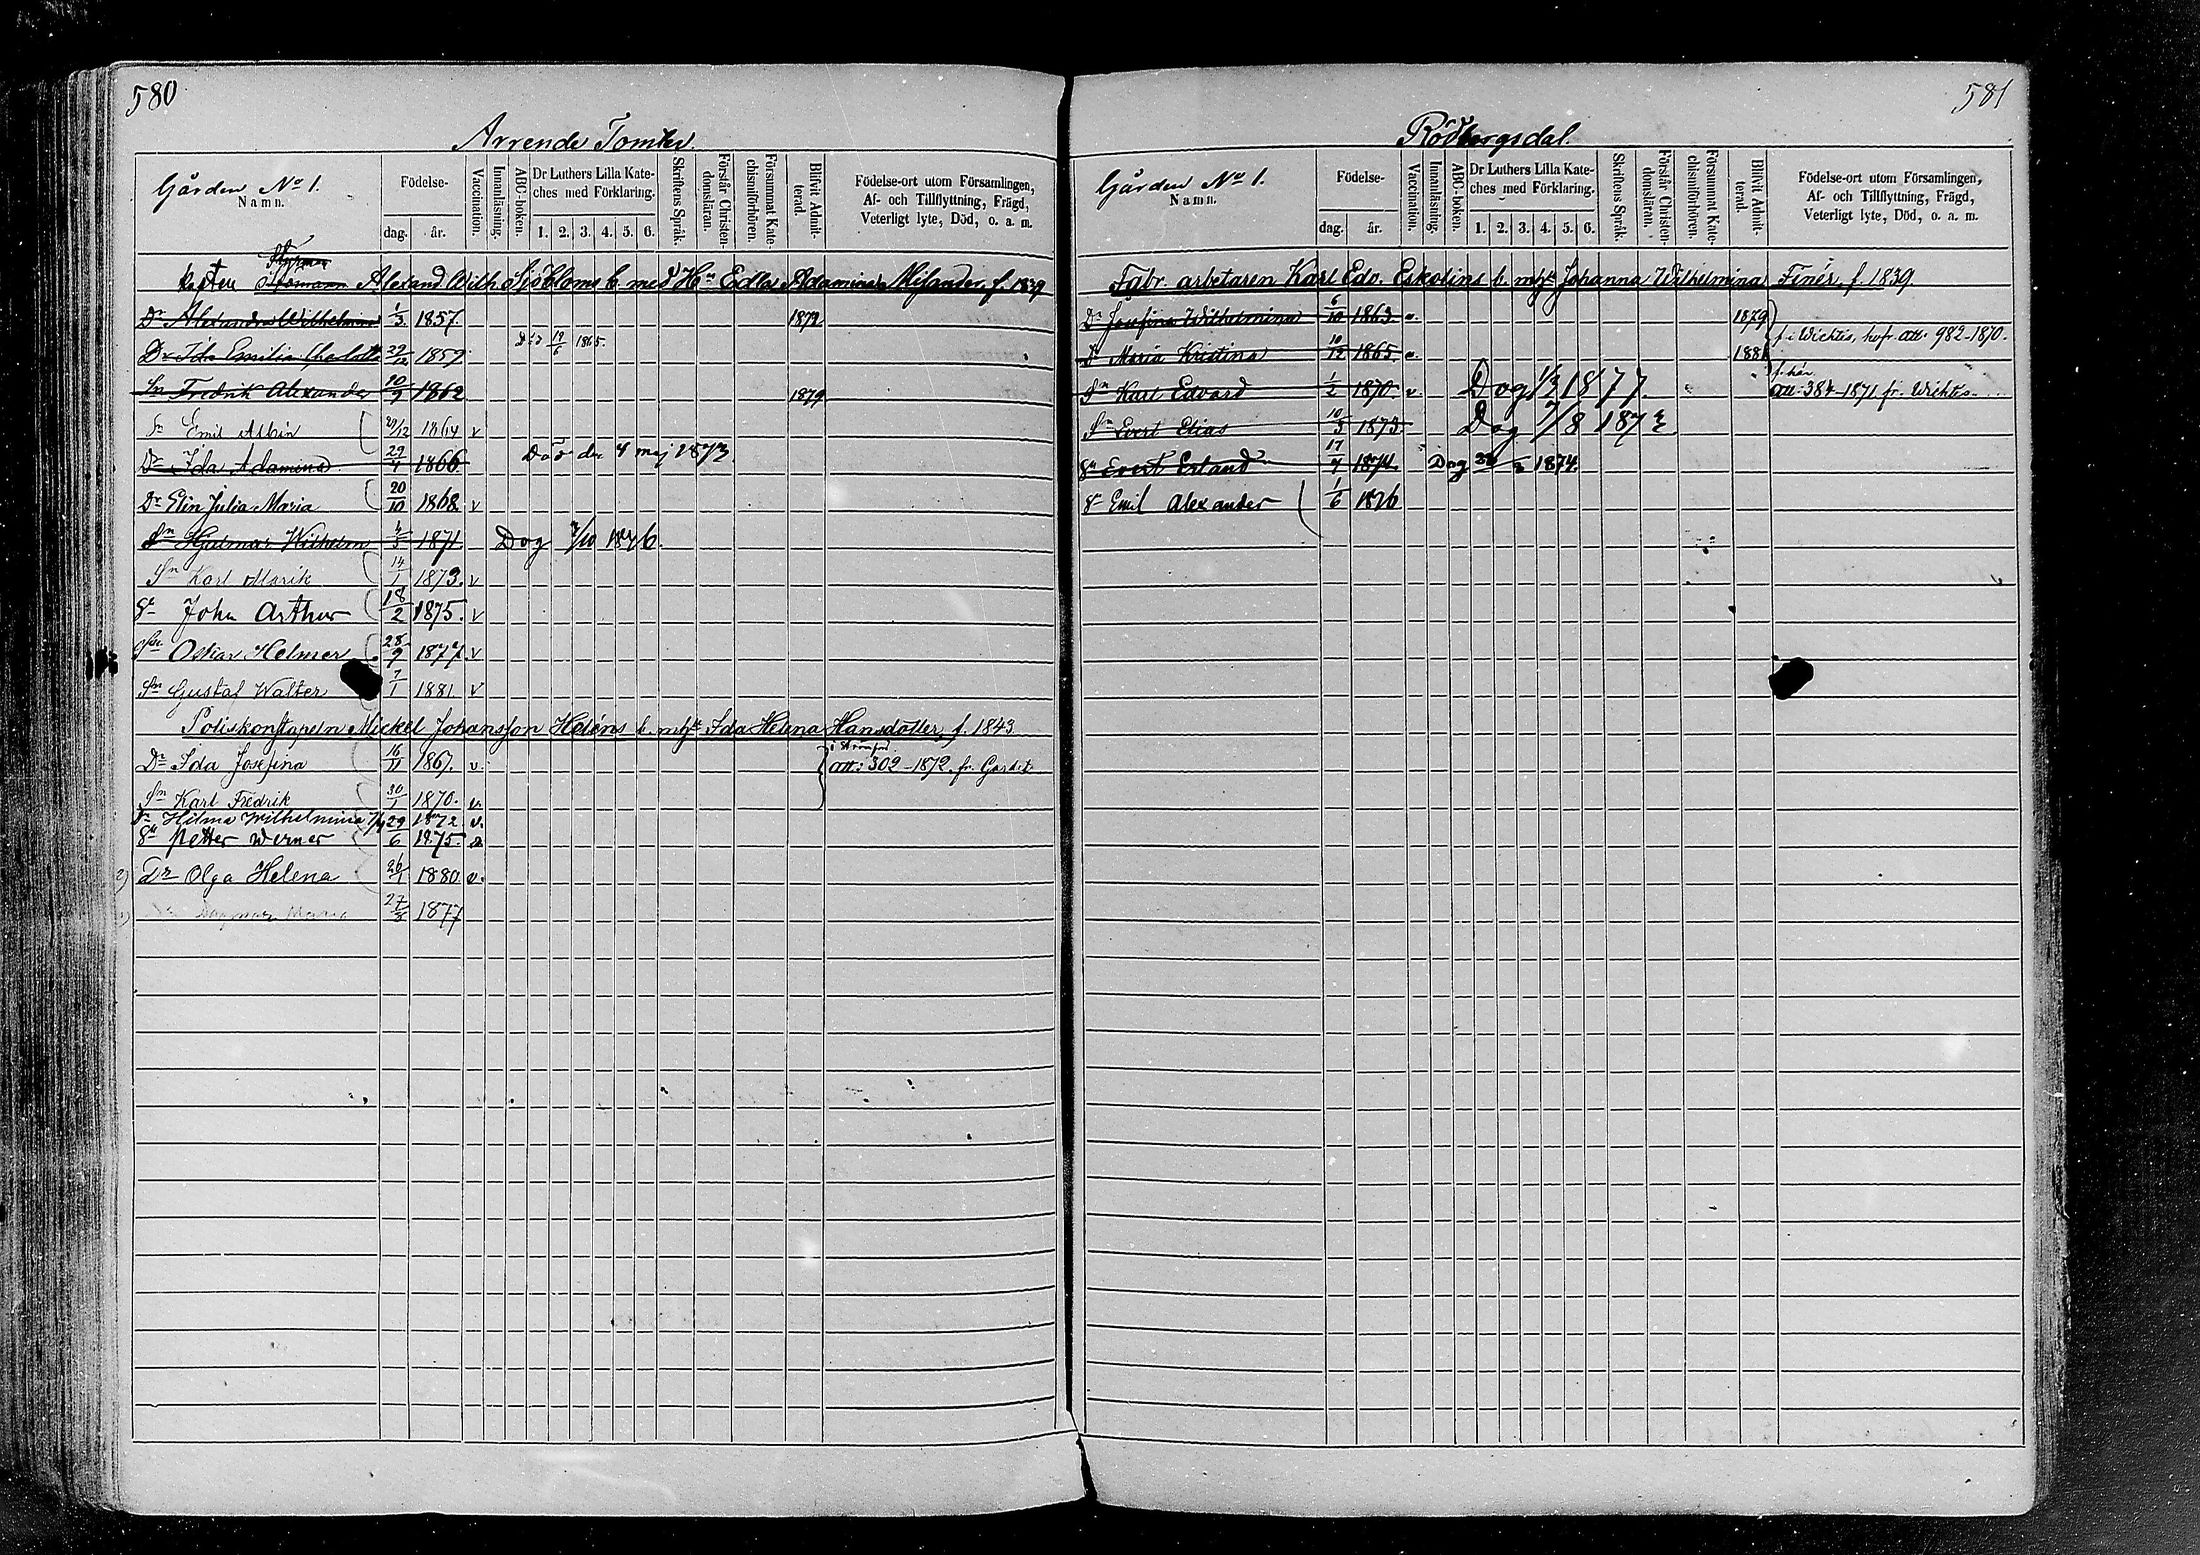 580
Arrende Tomter.
Gården No 1.
Namn.
Födelse-
dag.
år.
Vaccination.
Innanläsning.
ABC-boken.
Dr Luthers Lilla Kate-
ches med Förklaring.
1. 2. 3. 4. 5. 6.
Skriftens Språk.
Förstår Christen-
domsläran.
Försummat Kate-
chismiförhören.
Blivit Admit-
terad.
Födelse-ort utom Församlingen,
Af- och Tillflyttning, Frägd,
Veterligt lyte, Död, o. a. m.
Styrman
Alexand. Wilh. Sjöbloms b. med Hu Edla Adamina Melander, f. 1839
Dr Alexandra Wilhelmina 1/3 1857. 1872
Dr Ida Emilia Charlotta 29/12 1859. Död 19/6 1865.
Sn Fredrik Alexander 20/9 1862 1879
Sn Emil Albin 29/12 1864 v
Dr Ida Adamina 29/4 1866 Död den 4 maj 1873
Dr Elin Julia Maria 20/10 1868 v
Sn Hjalmar Wilhelm 4/3 1871. Dog 7/10 1876.
Sn Karl 14/1 1873. v
Sn John Arthur 18/2 1875. v
Sn Oskar Helmer 28/9 1877. v
Sn Gustaf Walter 7/1 1881 v
Poliskonstapeln Mickel Johansson Heléns b. m. hu Ida Helena Hansdotter, f. 1843
Dr Ida Josefina 16/11 1867. v. att: 302-1872. fr.
Sn Karl Fredrik 30/1 1870. v.
Dr Hilma Wilhelmina 1872 v.
Sn Petter Werner 29/6 1875. v.
2) Dr Olga Helena 26/1 1880 v.
1) Dagmar Maria 27/8 1877
581
Rödbergsdal.
Gården No 1.
Namn.
Födelse-
dag.
år.
Vaccination.
Innanläsning.
ABC-boken.
Dr Luthers Lilla Kate-
ches med Förklaring.
1. 2. 3. 4. 5. 6.
Skriftens Språk.
Förstår Christen-
domsläran.
Försummat Kate-
chismiförhören.
Blivit Admit-
terad.
Födelse-ort utom Församlingen,
Af- och Tillflyttning, Frägd,
Veterligt lyte, Död, o. a. m.
Fabr. arbetaren Karl Edv. Eskolins b. m. hu Johanna Wilhelmina Finér, f. 1839.
Dr Josefina Wilhelmina 6/10 1863 v. 1879
f. i Wichtis, att: 982-1870.
Dr Maria Kristina 10/12 1865 v. 1881
f. här
Sn Karl Edvard 1/2 1870. v. Dog 1/3 1877. att: 384-1871 fr. Wichtis.
Sn Evert Elias 10/3 1873. Dog 7/8 1873
Sn Evert Erland 17/4 1874. Dog 1874.
Sn Emil Alexander 1/6 1876